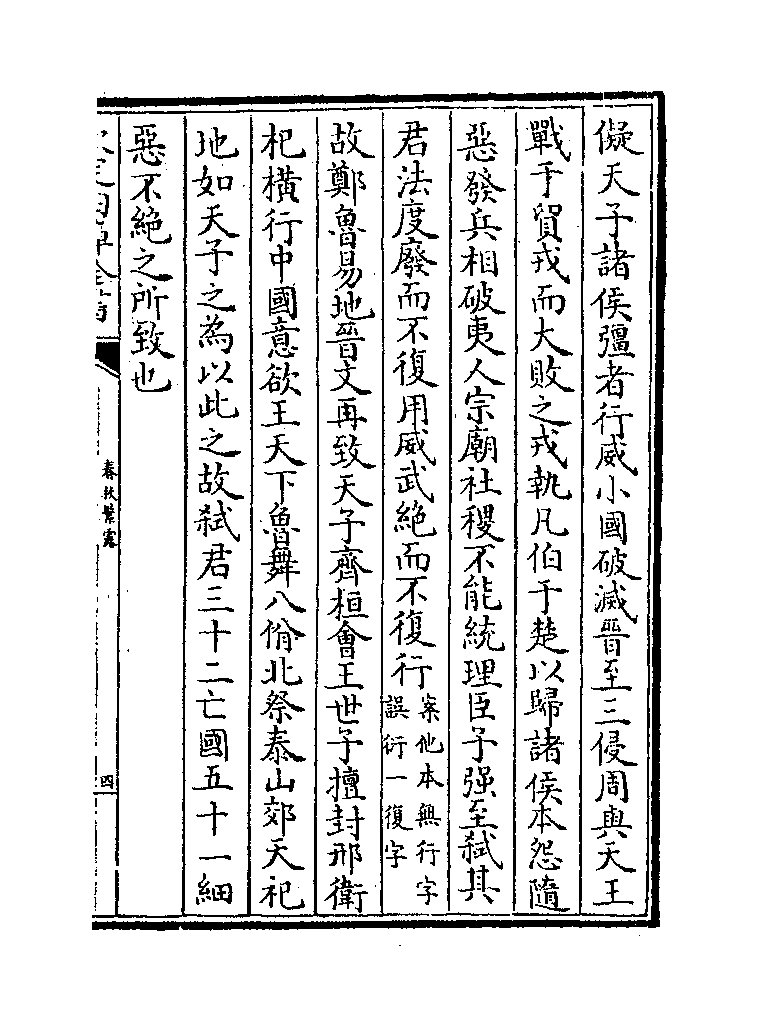 儗天子諸侯彊者行威小國破滅晉至三侵周與天王
戰于貿戎而大敗之戎執凡伯于楚以歸諸侯本怨隨
惡發兵相破夷人宗廟社稷不能統理臣子强至弑其
君法度廢而不復用威武絶而不復行案他本無行字
誤衍一復字
故鄭魯易地晉文再致天子齊桓會王世子擅封邢衛
杞横行中國意欲王天下魯舞八佾北祭泰山郊天祀
地如天子之為以此之故弑君三十二亡國五十一細
惡不絶之所致也
春秋繁露
四